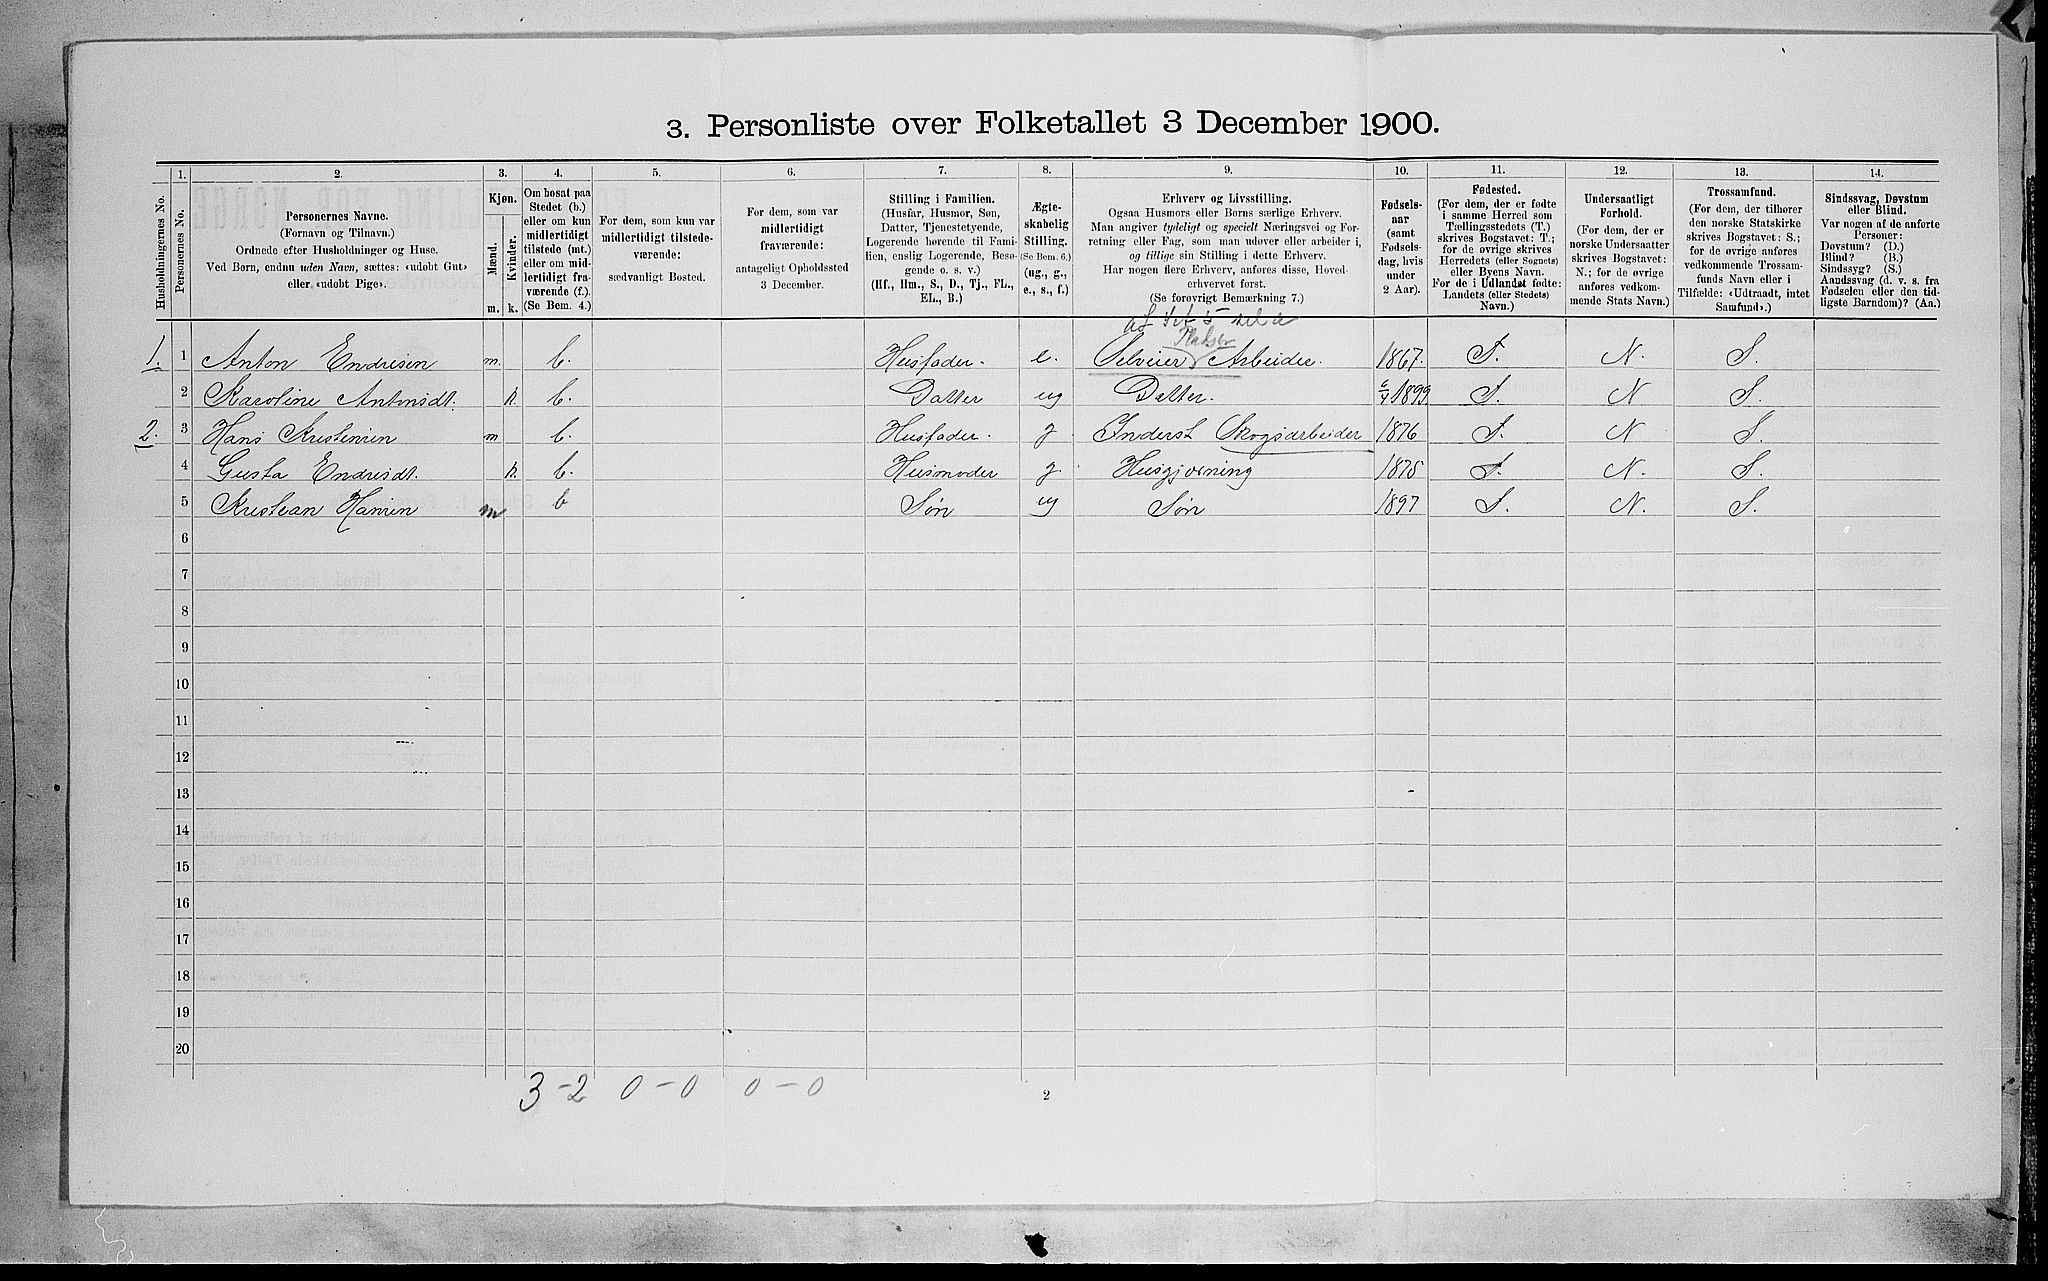 3. Personliste over Folketallet 3 December 1900.
Husholdningernes No.
1.
Personernes No.
2.
Personernes Navne.
(Fornavn og Tilnavn.)
Ordnede efter Husholdninger og Huse.
Ved Børn, endnu uden Navn, sættes: «udøbt Gut»
eller «udøbt Pige».
3.
Kjøn.
Mænd.
Kvinder.
m. k.
4.
Om bosat paa
Stedet (b.)
eller om kun
midlertidigt
tilstede (mt.)
eller om mid-
lertidigt fra-
værende (f.).
(Se Bem. 4.)
5.
For dem, som kun var
midlertidigt tilstede-
værende:
sædvanligt Bosted.
6.
For dem, som var
midlertidigt
fraværende:
antageligt Opholdssted
3 December.
7.
Stilling i Familien.
(Husfar, Husmor, Søn,
Datter, Tjenestetyende,
Logerende hørende til Fami-
lien, enslig Logerende, Besø-
gende o. s. v.)
(Hf., Hm., S., D., Tj., FL.,
EL., B.)
8.
Ægte-
skabelig
Stilling.
(Se Bem. 6.)
(ug., g.,
e., s., f.)
9.
Erhverv og Livsstilling.
Ogsaa Husmors eller Børns særlige Erhverv.
Man angiver tydeligt og specielt Næringsvei og For-
retning eller Fag, som man udøver eller arbeider i,
og tillige sin Stilling i dette Erhverv.
Har nogen flere Erhverv, anføres disse, Hoved-
erhvervet først.
(Se forøvrigt Bemærkning 7.)
10.
Fødsels-
aar
(samt
Fødsels-
dag, hvis
under
2 Aar).
11.
Fødested.
(For dem, der er fødte
i samme Herred som
Tællingsstedets (T.)
skrives Bogstavet: T.;
for de øvrige skrives
Herredets (eller Sognets)
eller Byens Navn.
For de i Udlandet fødte:
Landets (eller Stedets)
Navn.)
12.
Undersaatligt
Forhold.
(For dem, der er
norske Undersaatter
skrives Bogstavet:
N.; for de øvrige
anføres vedkom-
mende Stats Navn.)
13.
Trossamfund.
(For dem, der tilhører
den norske Statskirke
skrives Bogstavet: S.;
for de øvrige anføres
vedkommende Trossam-
funds Navn eller i
Tilfælde: «Udtraadt, intet
Samfund».)
14.
Sindssvag, Døvstum
eller Blind.
Var nogen af de anførte
Personer:
Døvstum? (D.)
Blind? (B.)
Sindssyg? (S.)
Aandssvag (d. v. s. fra
Fødselen eller den tid-
ligste Barndom)? (Aa.)
Pladser
1. 1 Anton Endresen m. b. Husfader. e. Selveier Arbeider. 1867. T. N. S.
2 Karoline Antonsdt. k. b. Datter ug Datter. 1899 T. N S.
2. 3 Hans Kristensen m b. Husfader. g Inderst Skogsarbeider 1876 T. N S.
4 Gusta Endresdt. k. b. Husmoder g. Husgjerning 1875 T. N. S.
5 Kristian Hansen m b Søn ug Søn 1897 T. N. S.
6
7
8
9
10
11
12
13
14
15
16
17
18
19
20
3-2 0-0 0-0
2